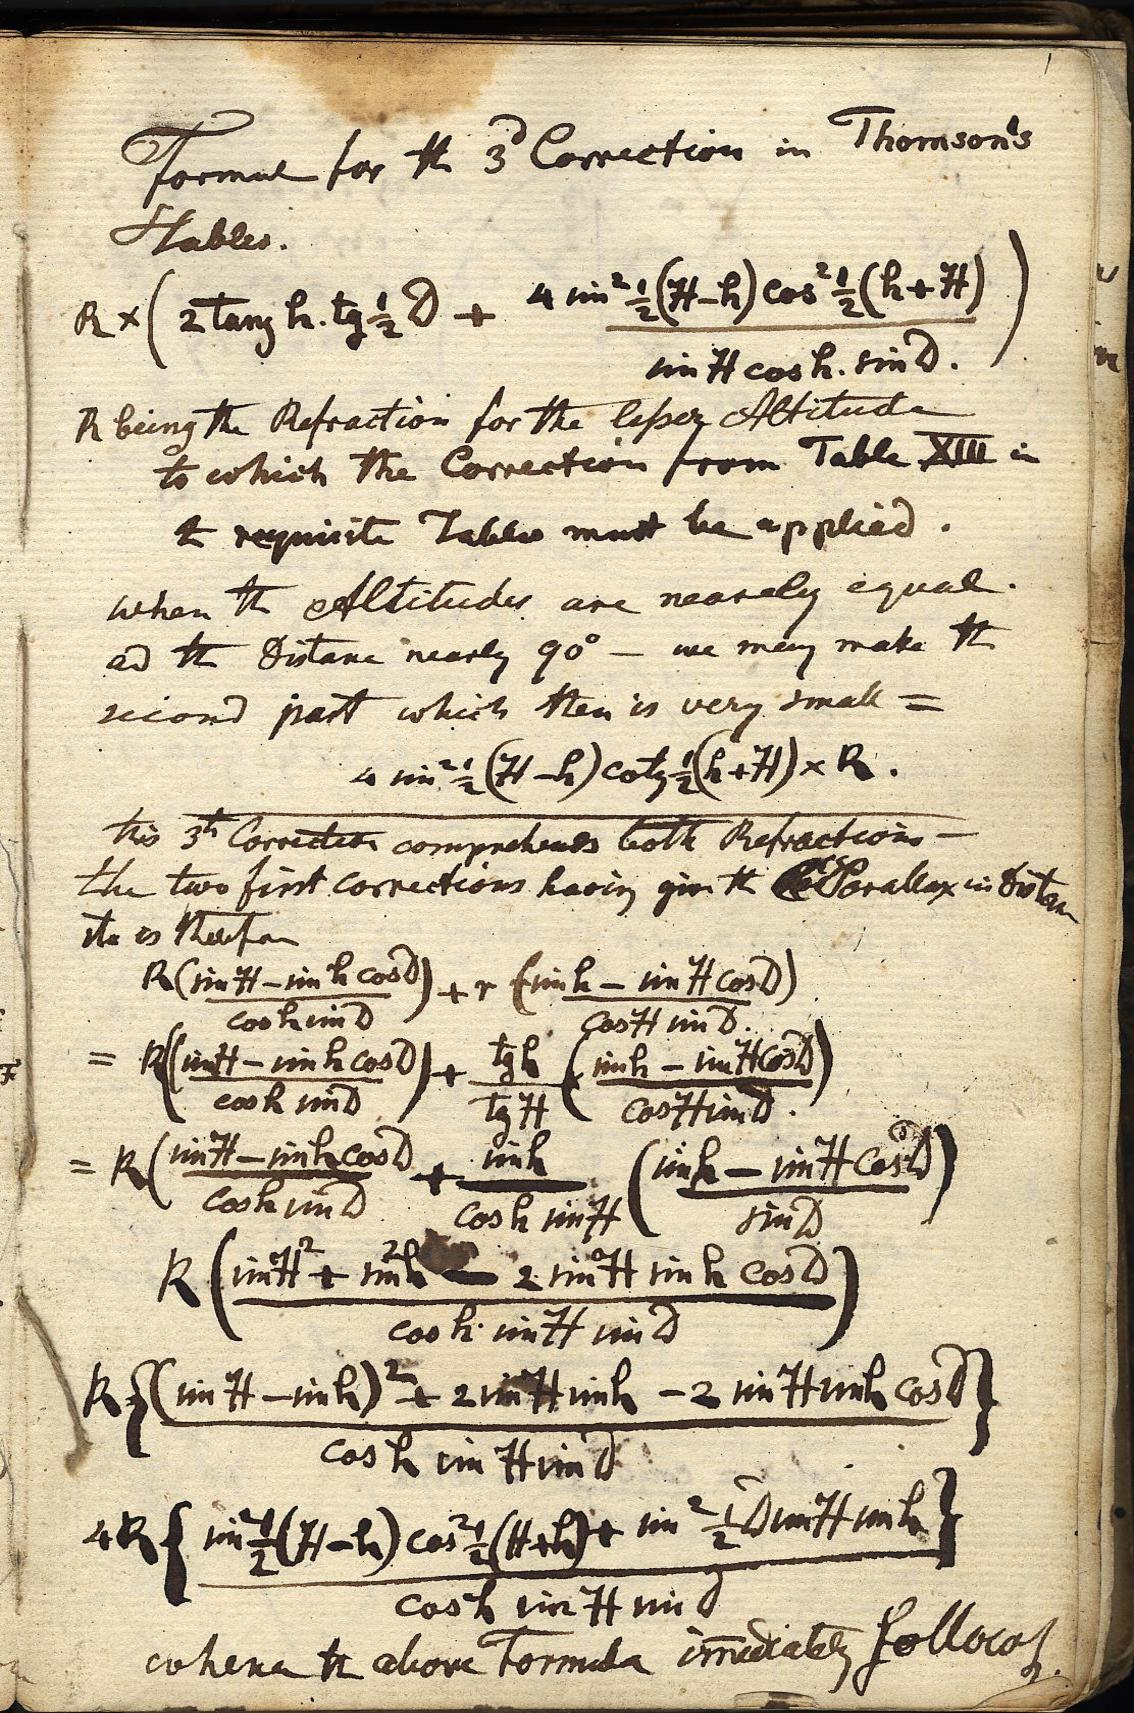 1
Formul for th 3d Correction in Thomson's
Tables.
R × ( 2 tang h. tg ½ D + 4 sin² ½ (H-h) cos² ½ (h+H) )
sin H cos h. sin D.
R being the Refraction for the lesser Altitude
to which the Correction from Table XIII in
t requisite Tables must be applied.
when th Altitudes are nearly equal.
ad th Distane nearly 90° – we may make th
second part which then is very small =
4 sin² ½ (H-h) cotg ½ (h+H) × R.
this 3th Correction comprehends both Refractions –
the two first corrections having giv th Parallax in Distan
it is therfor
R (sin H – sin h cos D) + r (sin h – sin H cos D)
cos h sin D cos H sin D.
= R ((sin H – sin h cos D) + tg h (sin h – sin H cos D)
cos h sin D tg H cos H sin D.
= R ( sin H – sin h cos D + sin h ( sin h – sin H cos D )
cos h sin D cos h sin H sin D
R ( sin H² + sin² h – 2 sin H sin h cos D )
cos h. sin H sin D
R { (sin H – sin h)² + 2 sin H sin h – 2 sin H sin h cos D }
cos h sin H sin D
4R { sin² ½ (H-h) cos² ½ (H+h) + sin² ½ D sin H sin h }
cos h sin H sin D
whene th above Formula imediately follows.